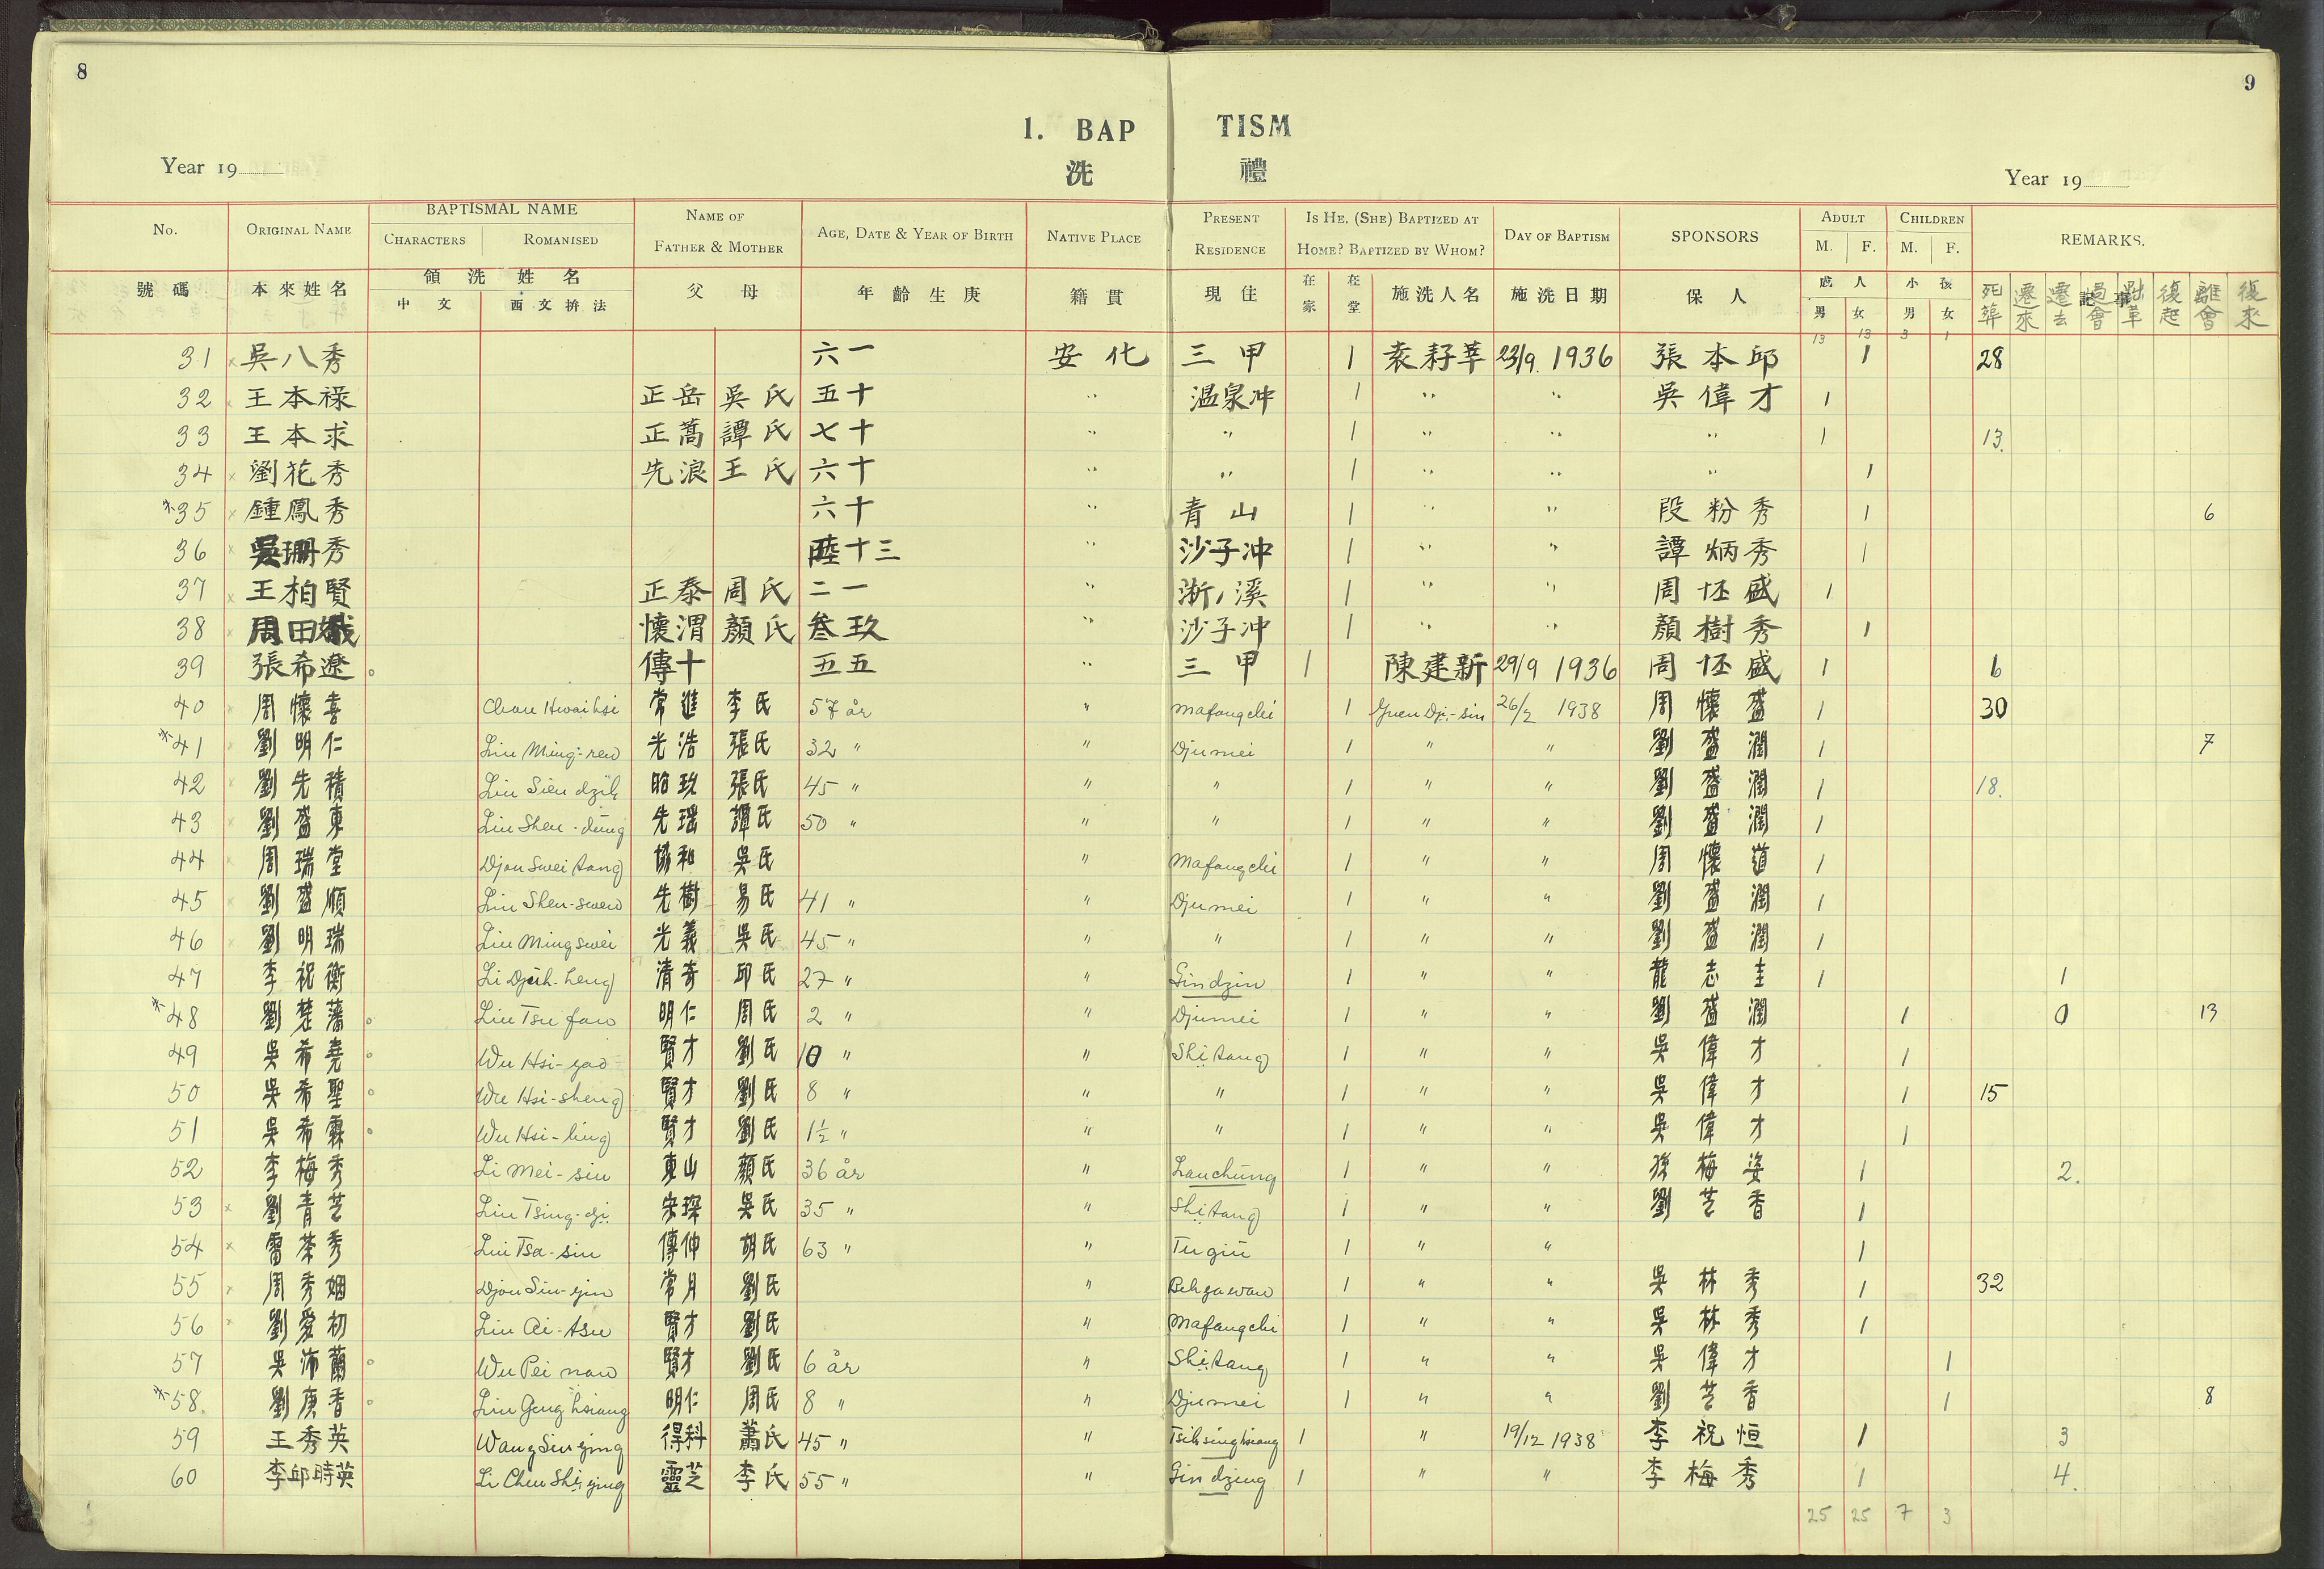 8
9
1. BAP TISM
洗 禮
Year 19
Year 19
No. ORIGINAL NAME BAPTISMAL NAME CHARACTERS ROMANISED NAME OF FATHER & MOTHER AGE, DATE & YEAR OF BIRTH NATIVE PLACE PRESENT RESIDENCE IS HE, (SHE) BAPTIZED AT HOME? BAPTIZED BY WHOM? DAY OF BAPTISM SPONSORS ADULT M. F. CHILDREN M. F. REMARKS.
號碼 本來姓名 領洗姓名 中文 西文拚法 父母 年齡生庚 籍貫 現住 在家 在堂 施洗人名 施洗日期 保人 成人 男 女 小孩 男 女 記事 死葬 遷來 遷去 過會 黜革 復起 離會 復來
13 13 3 1
31 × 吳八秀 六一 安化 三甲 1 袁耔莘 23/9. 1936 張本邱 1 28
32 王本祿 正岳 吳氏 五十 " 温泉冲 1 " " 吳偉才 1
33 王本求 正蒿 譚氏 七十 " " 1 " " " 1 13.
34 × 劉花秀 先浪 王氏 六十 " " 1 " " " 1
35 × 鍾鳳秀 六十 " 青山 1 " " 段粉秀 1 6
36 吳珊秀 陸十三 " 沙子冲 1 " " 譚炳秀 1
37 × 王柏賢 正泰 周氏 二一 " 淅溪 1 " " 周坯盛 1
38 周田娥 懷渭 顏氏 叁玖 " 沙子冲 1 " " 顏樹秀 1
39 張希遼 傳十 五五 " 三甲 1 陳建新 29/9 1936 周坯盛 1 6
40 周懷喜 Chou Hwai hsi 常進 李氏 57 år " Mafangchi 1 Yuen Dji-sin 26/2 1938 周懷盛 1 30
41 劉明仁 Liu Ming-ren 光浩 張氏 32 " " Djumei 1 " " 劉盛潤 1 7
42 劉先積 Liu Sien dzih 昭玖 張氏 45 " " " 1 " " 劉盛潤 1 18.
43 劉盛東 Liu Shen-dung 先瑶 譚氏 50 " " " 1 " " 劉盛潤 1
44 周瑞堂 Djou Swei tang 協和 吳氏 " Mafangchi 1 " " 周懷道 1
45 劉盛順 Liu Shen-swen 先樹 易氏 41 " " Djumei 1 " " 劉盛潤 1
46 劉明瑞 Liu Ming swei 光義 吳氏 45 " " " 1 " " 劉盛潤 1
47 李祝衡 Li Djuh-heng 清奇 邱氏 27 " " Gindzin 1 " " 龍志圭 1 1
48 劉楚藩 Liu Tsu fan 明仁 周氏 2 " " Djumei 1 " " 劉盛潤 1 0 13
49 吳希堯 Wu Hsi-yao 賢才 劉氏 10 " " Shitang 1 " " 吳偉才 1
50 吳希聖 Wu Hsi-sheng 賢才 劉氏 8 " " " 1 " " 吳偉才 1 15
51 吳希霖 Wu Hsi-ling 賢才 劉氏 1½ " " " 1 " " 吳偉才 1
52 李梅秀 Li Mei-siu 東山 顏氏 36 år " Lanchung 1 " " 孫梅姿 1 2.
53 × 劉青芝 Liu Tsing-dji 宋琛 吳氏 35 " " Shitang 1 " " 劉芝香 1
54 × 雷茶秀 Lui Tsa-siu 傳伸 胡氏 63 " " Tugiu 1 " " 1
55 × 周秀姻 Djou Siu-yin 常月 劉氏 " 1 " " 吳林秀 1 32
56 × 劉愛初 Liu Ai-tsu 賢才 劉氏 " Mafangchi 1 " " 吳林秀 1
57 吳沛蘭 Wu Pei nan 賢才 劉氏 6 år " Shitang 1 " " 吳偉才 1
58. 劉庚香 Liu Geng hsiang 明仁 周氏 8 " " Djumei 1 " " 劉芝香 1 8
59 王秀英 Wang Siu ying 得科 蕭氏 45 " " Tsihsinghsiang 1 " 19/12 1938 李祝恒 1 3
60 李邱時英 Li Chiu Shi ying 靈芝 李氏 55 " " Gindzing 1 " " 李梅秀 1 4.
25 25 7 3